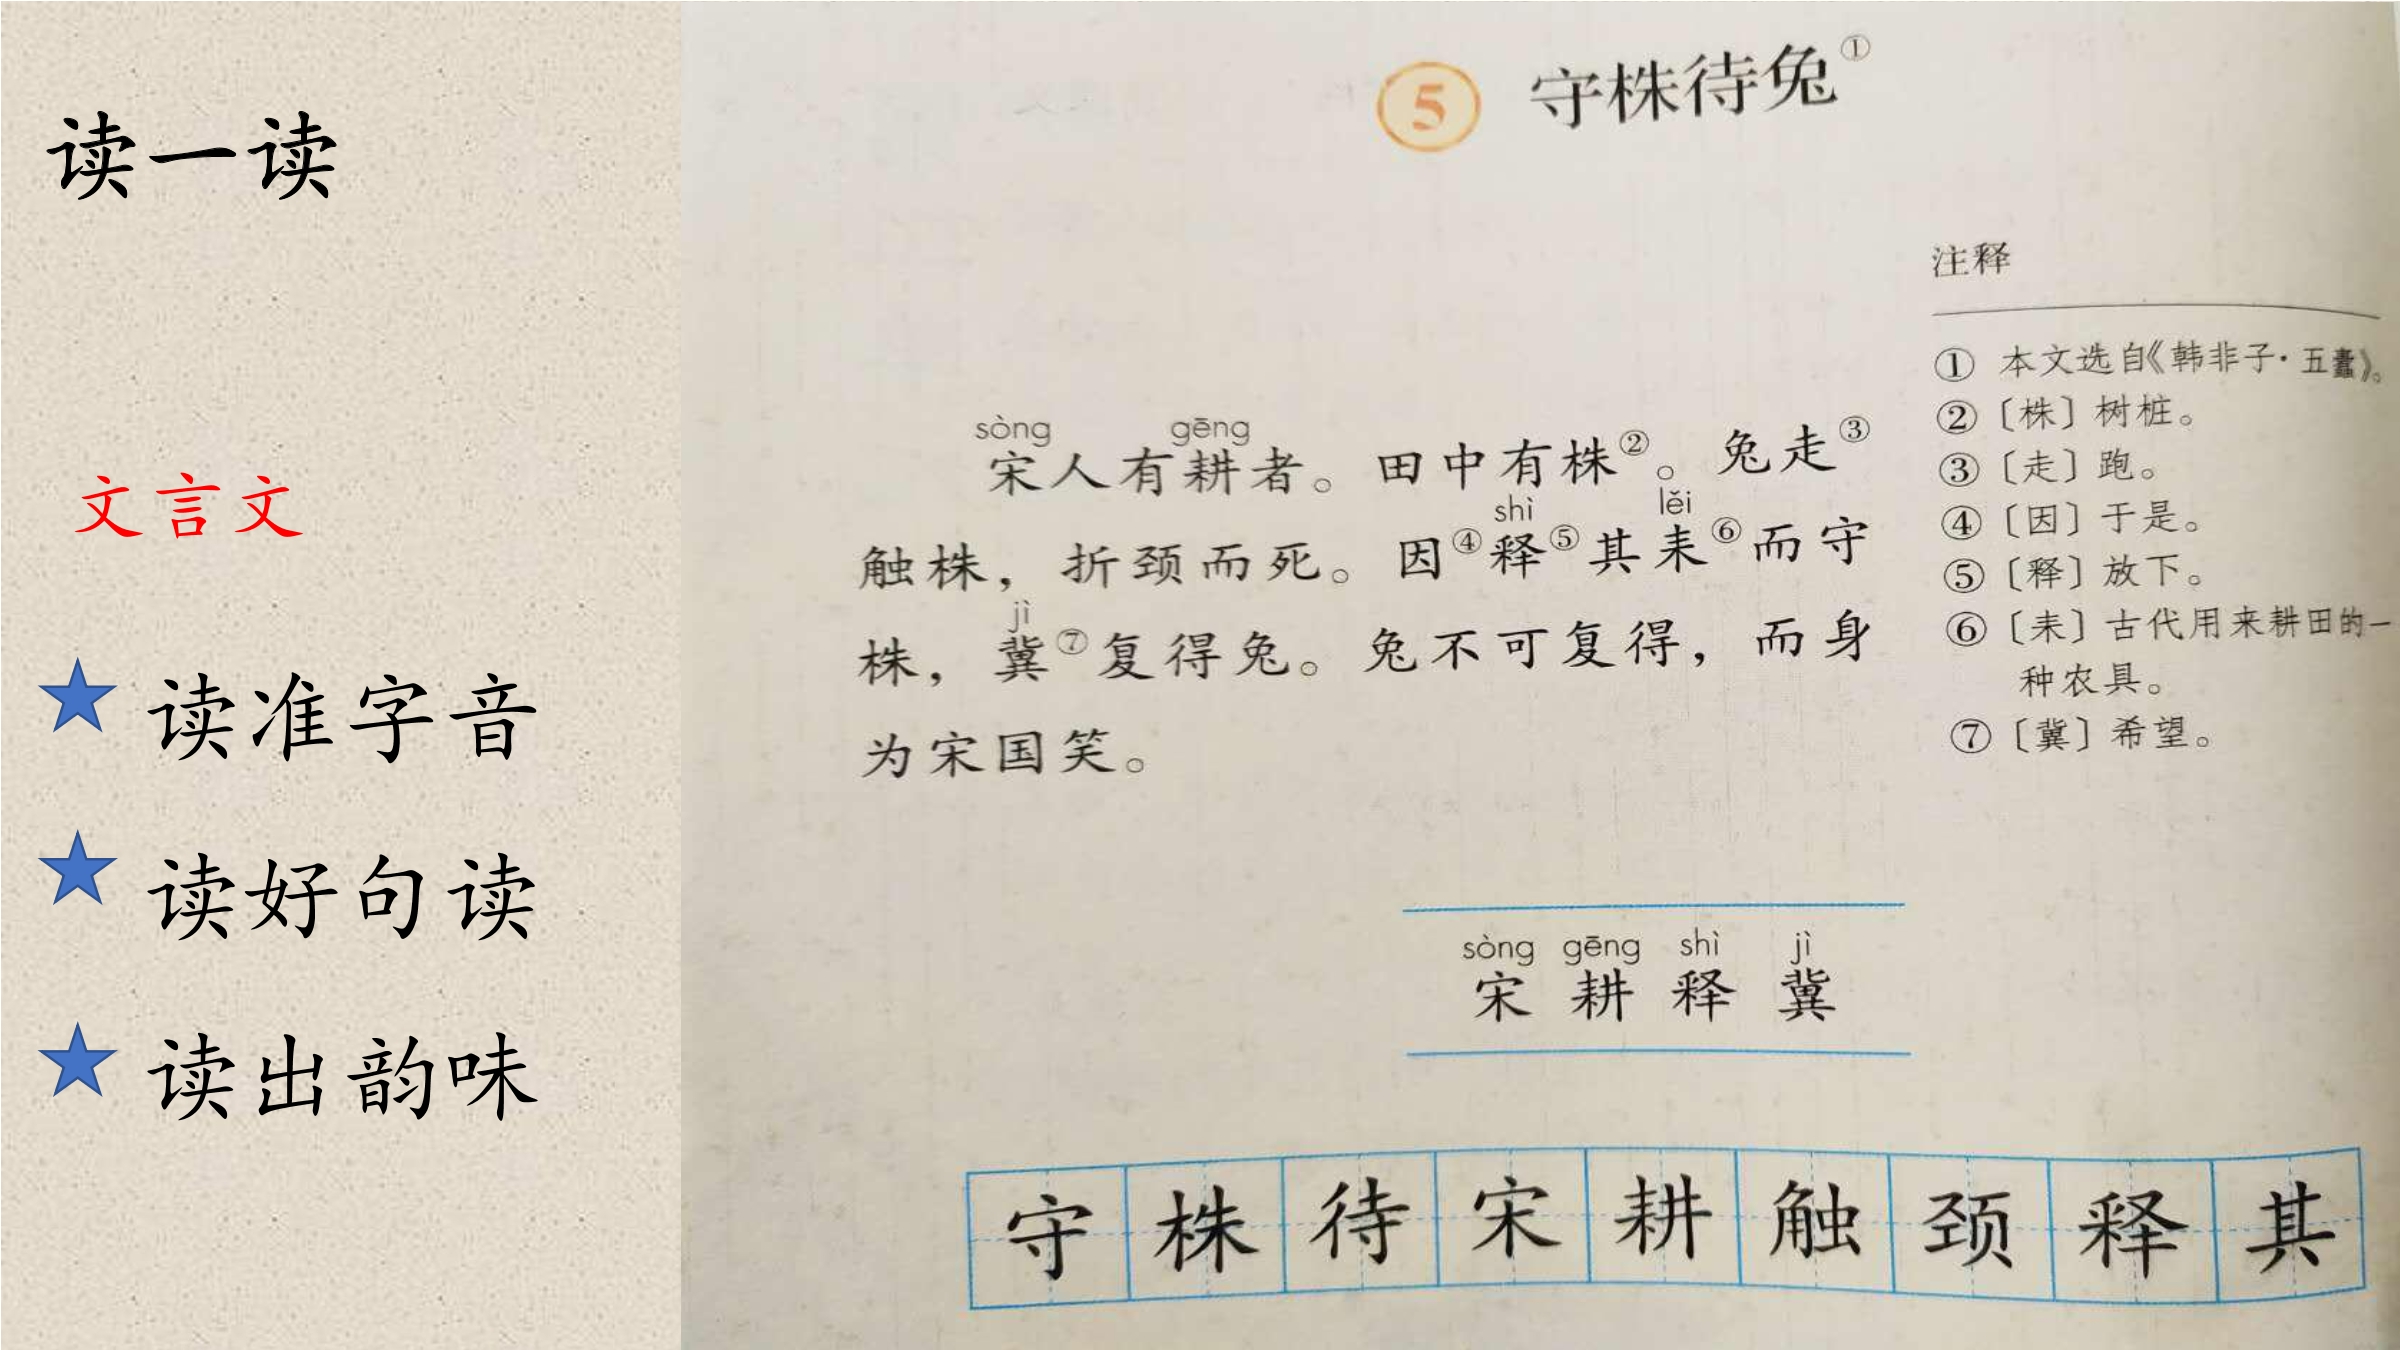 读一读
文言文
读准字音
读好句读
读出韵味
5 守株待兔①
sòng gēng
宋人有耕者。田中有株②。兔走③
shì lěi
触株，折颈而死。因④释⑤其耒⑥而守
jì
株，冀⑦复得兔。兔不可复得，而身
为宋国笑。
注释
① 本文选自《韩非子·五蠹》。
②〔株〕树桩。
③〔走〕跑。
④〔因〕于是。
⑤〔释〕放下。
⑥〔耒〕古代用来耕田的一
种农具。
⑦〔冀〕希望。
sòng gēng shì jì
宋 耕 释 冀
守 株 待 宋 耕 触 颈 释 其